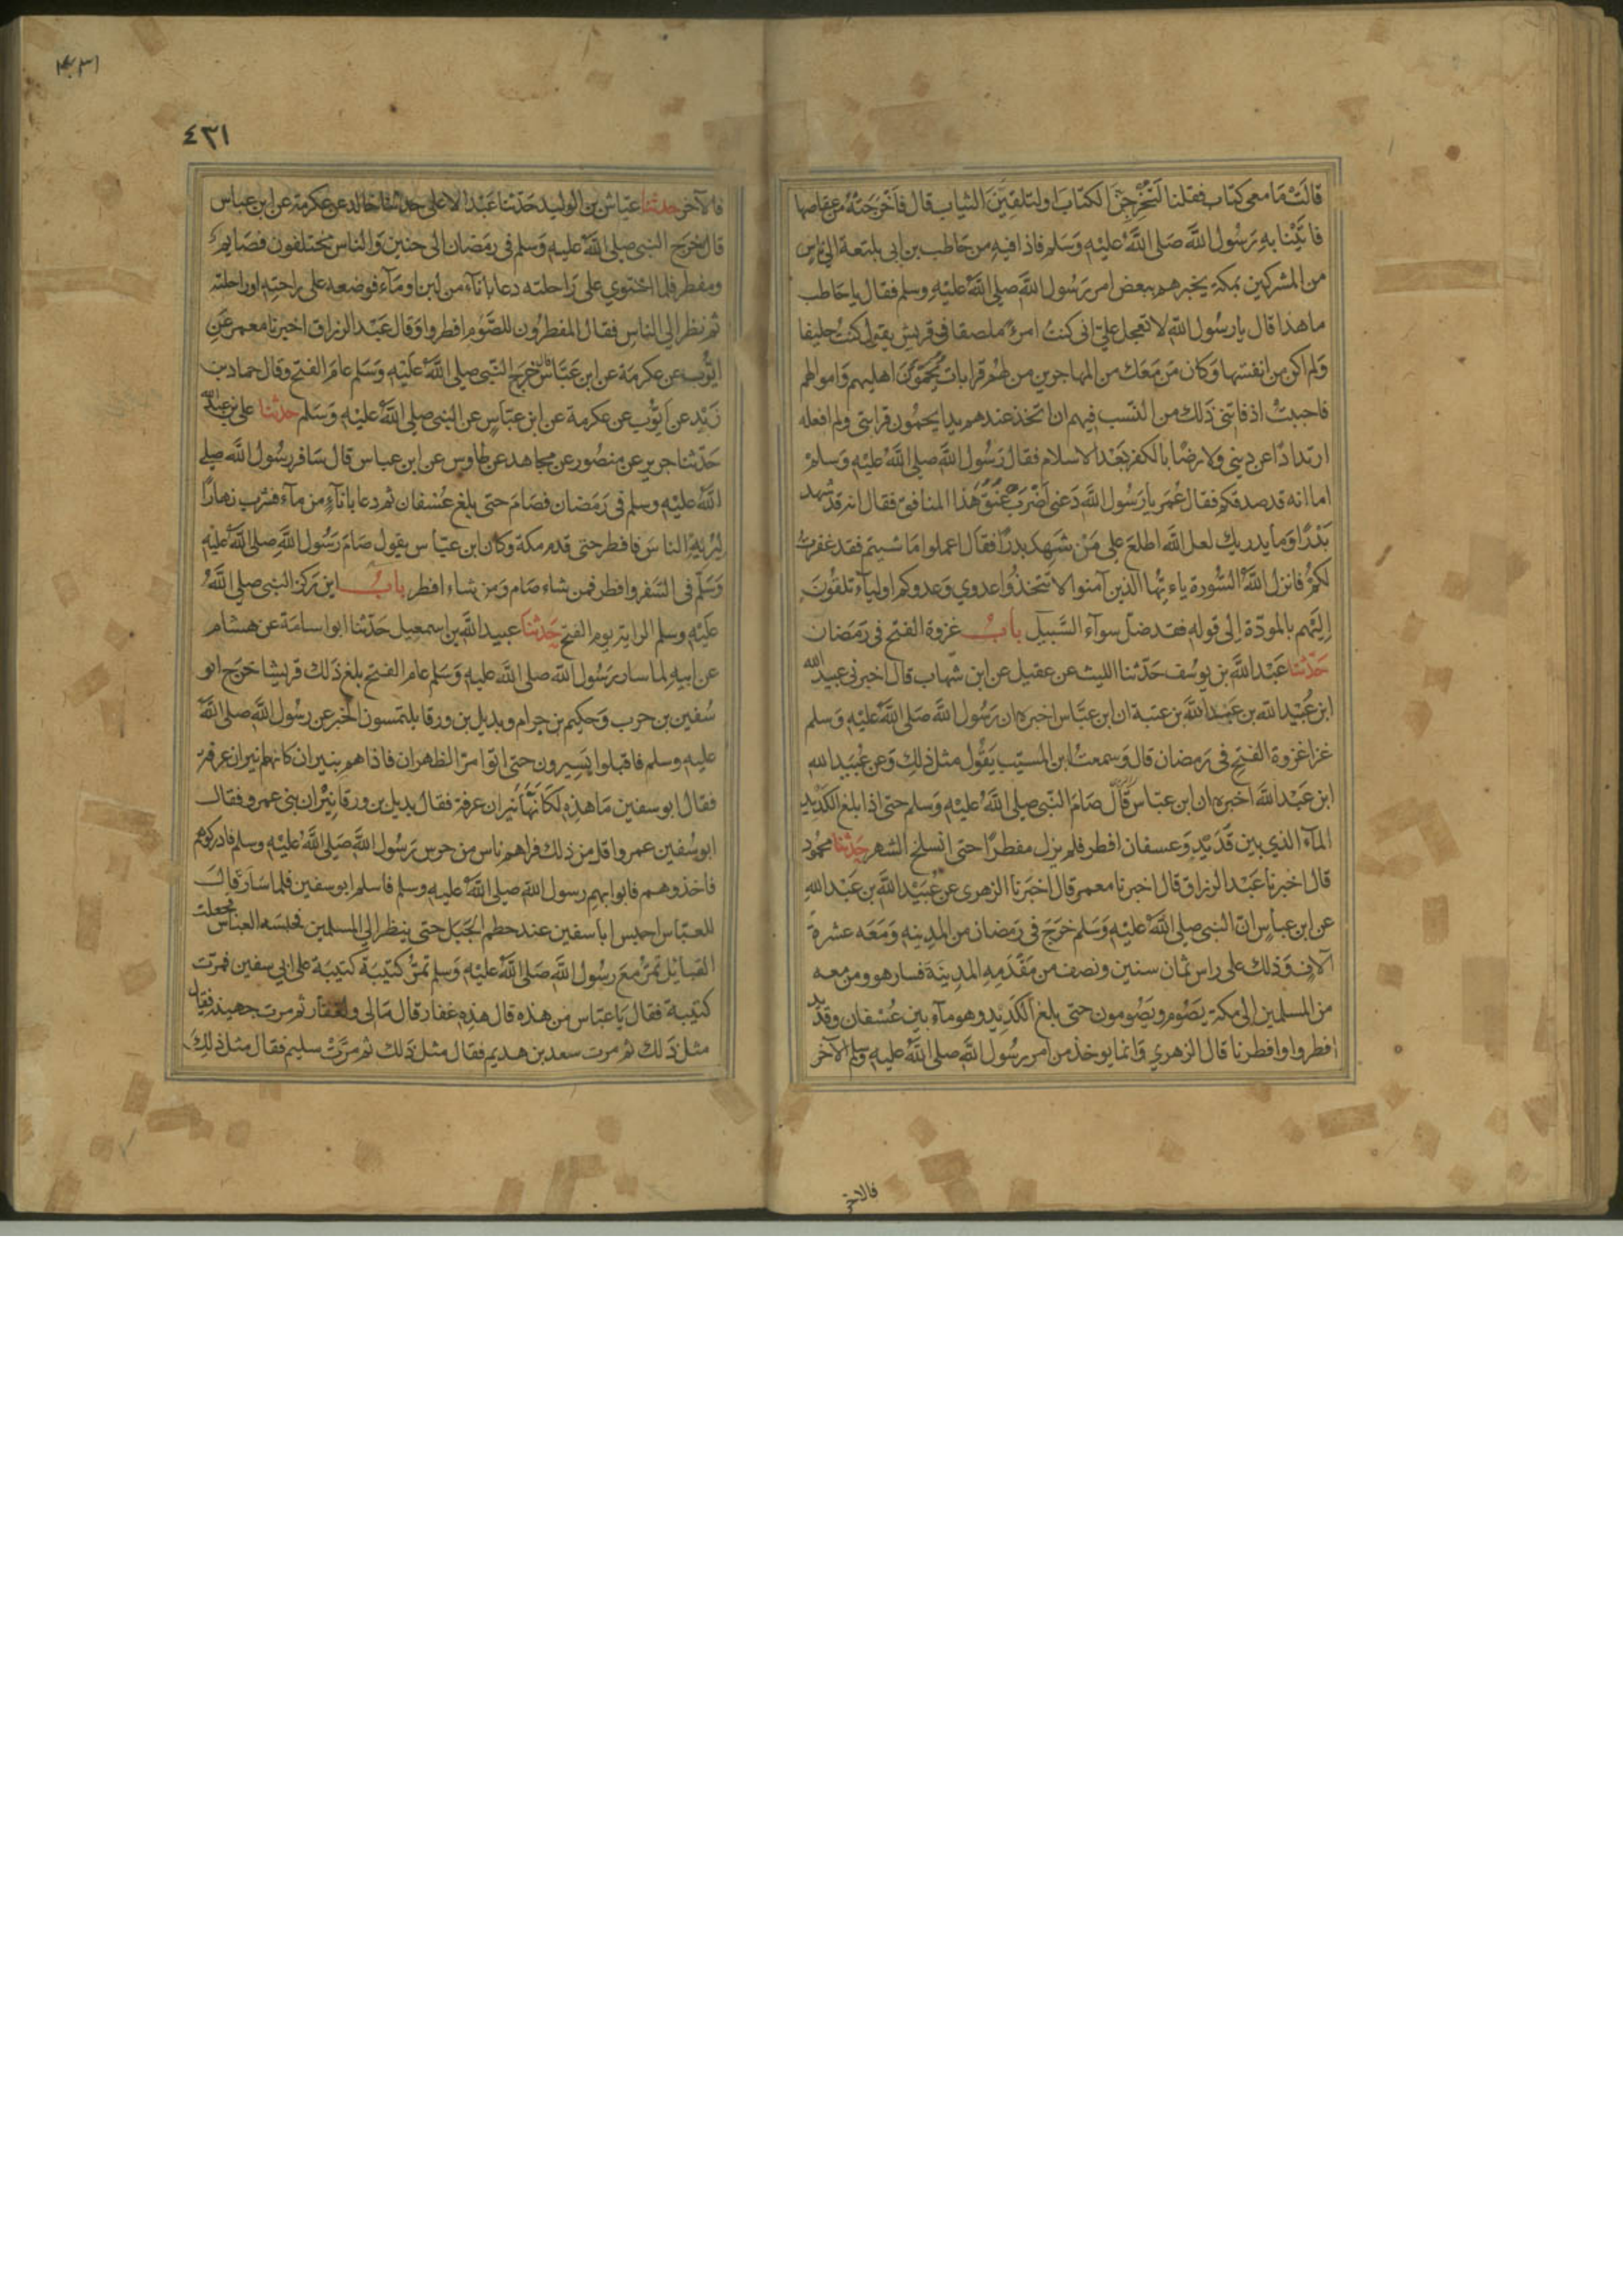 قالت ما معي كتاب فقلنا لتخرجن الكتاب او لتلقين الثياب قال فاخرجته من عقاصها
فاتينا به رسول الله صلى الله عليه وسلم فاذا فيه من حاطب بن ابي بلتعة الي ناس
من المشركين بمكة يخبرهم ببعض امر رسول الله صلى الله عليه وسلم فقال يا حاطب
ما هذا قال يا رسول الله لا تعجل علي اني كنت امرءً ملصقا في قريش يقول كنت حليفا
ولم اكن من انفسها وكان من معك من المهاجرين من لهم قرابات يحمون اهليهم واموالهم
فاحببت اذ فاتني ذلك من النسب فيهم ان اتخذ عندهم يدا يحمون قرابتي ولم افعله
ارتدادًا عن ديني ولا رضًا بالكفر بعد الاسلام فقال رسول الله صلى الله عليه وسلم
اما انه قد صدقكم فقال عمر يا رسول الله دعني اضرب عنق هذا المنافق فقال انه قد شهد
بدرًا وما يدريك لعل الله اطلع على من شهد بدرًا فقال اعملوا ما شيتم فقد غفرت
لكم فانزل الله السورة ياءيها الذين آمنوا لا تتخذوا عدوي وعدوكم اولياء تلقون
اليهم بالمودة إلى قوله فقد ضل سوآء السبيل باب غزوة الفتح في رمضان
حدثنا عبد الله بن يوسف حدثنا الليث عن عقيل عن ابن شهاب قال اخبرني عبيد الله
ابن عبيد الله بن عبد الله بن عتبة ان ابن عباس اخبره ان رسول الله صلى الله عليه وسلم
غزا غزوة الفتح في رمضان قال وسمعت ابن المسيب يقول مثل ذلك وعن عبيد الله
ابن عبد الله اخبره ان ابن عباس قال صام النبي صلى الله عليه وسلم حتى اذا بلغ الكديد
المآء الذي بين قديد وعسفان افطر فلم يزل مفطرًا حتى انسلخ الشهر حدثنا محمود
قال اخبرنا عبد الرزاق قال اخبرنا معمر قال اخبرنا الزهري عن عبيد الله بن عبد الله
عن ابن عباس انّ النبي صلى الله عليه وسلم خرج في رمضان من المدينة ومعه عشرة
آلاف وذلك على راس ثمان سنين ونصف من مقدمه المدينة فسار هو ومن معه
من المسلمين الى مكة يصوم ويصومون حتى بلغ الكديد وهو مآء بين عسفان وقديد
افطروا وافطرنا قال الزهري وانما يوخذ من امر رسول الله صلى الله عليه وسلم الآخر
فالاخر
١٤٣١
٤٣١
فالآخر حدثنا عياش بن الوليد حدثنا عبد الاعلى حدثنا خالد عن عكرمة عن ابن عباس
قال خرج النبي صلى الله عليه وسلم في رمضان الى حنين والناس مختلفون فصايم
ومفطر فلما استوي على راحلته دعا باناء من لبن او مآء فوضعه على راحته او راحلته
ثم نظر الي الناس فقال المفطرون للصوم افطروا وقال عبد الرزاق اخبرنا معمر عن
ايوب عن عكرمة عن ابن عباس قال خرج النبي صلى الله عليه وسلم عام الفتح وقال حماد بن
زيد عن ايوب عن عكرمة عن ابن عباس عن النبي صلى الله عليه وسلم حدثنا علي بن عبد الله
حدثنا جرير عن منصور عن مجاهد عن طاوس عن ابن عباس قال سافر رسول الله صلى
الله عليه وسلم في رمضان فصام حتى بلغ عسفان ثم دعا باناء من مآء فشرب نهارًا
ليريه الناس فافطر حتى قدم مكة وكان ابن عباس يقول صام رسول الله صلى الله عليه
وسلم في السفر وافطر فمن شاء صام ومن شاء افطر باب اين ركز النبي صلى الله
عليه وسلم الراية يوم الفتح حدثنا عبيد الله بن اسمعيل حدثنا ابو اسامة عن هشام
عن ابيه لما سار رسول الله صلى الله عليه وسلم عام الفتح بلغ ذلك قريشا خرج ابو
سفين بن حرب وحكيم بن حزام وبديل بن ورقا يلتمسون الخبر عن رسول الله صلى الله
عليه وسلم فاقبلوا يسيرون حتى اتوا مر الظهران فاذا هم بنيران كانها نيران عرفة
فقال ابو سفين ما هذه لكانها نيران عرفة فقال بديل بن ورقا نيران بني عمرو فقال
ابو سفين عمرو اقل من ذلك فراهم ناس من حرس رسول الله صلى الله عليه وسلم فادركوهم
فاخذوهم فاتوا بهم رسول الله صلى الله عليه وسلم فاسلم ابو سفين فلما سار قال
للعباس احبس ابا سفين عند حطم الجبل حتى ينظر الي المسلمين فحبسه العباس فجعلت
القبايل تمر مع رسول الله صلى الله عليه وسلم تمر كتيبة كتيبة على ابي سفين فمرت
كتيبة فقال يا عباس من هذه قال هذه غفار قال مالي ولغفار ثم مرت جهينة فقال
مثل ذلك ثم مرت سعد بن هديم فقال مثل ذلك ثم مرت سليم فقال مثل ذلك